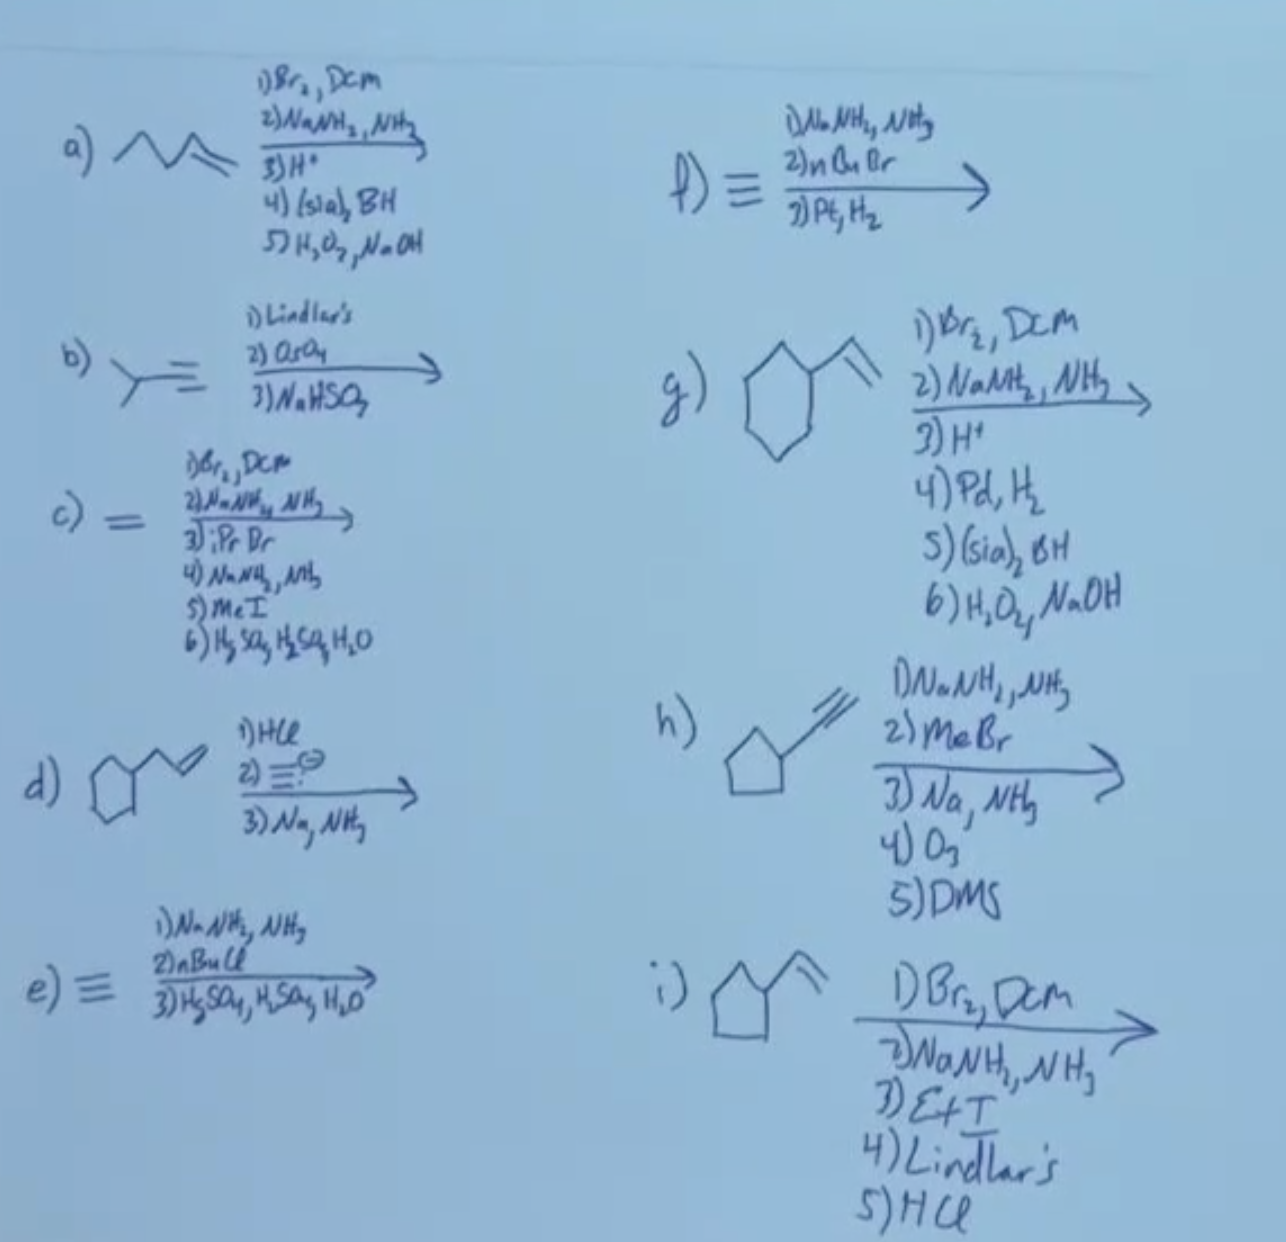 a)
1) Br₂, DCM
2) NaNH₂, NH₃
3) H⁺
4) (sia)₂ BH
5) H₂O₂, NaOH
b)
1) Lindlar's
2) OsO₄
3) NaHSO₃
c)
1) Br₂, DCM
2) NaNH₂, NH₃
3) iPrBr
4) NaNH₂, NH₃
5) MeI
6) HgSO₄, H₂SO₄, H₂O
d)
1) HCl
2) ⊖
3) Na, NH₃
e)
1) NaNH₂, NH₃
2) nBuCl
3) HgSO₄, H₂SO₄, H₂O
f)
1) NaNH₂, NH₃
2) nBuBr
3) Pt, H₂
g)
1) Br₂, DCM
2) NaNH₂, NH₃
3) H⁺
4) Pd, H₂
5) (sia)₂ BH
6) H₂O₂, NaOH
h)
1) NaNH₂, NH₃
2) MeBr
3) Na, NH₃
4) O₃
5) DMS
i)
1) Br₂, DCM
2) NaNH₂, NH₃
3) EtI
4) Lindlar's
5) HCl